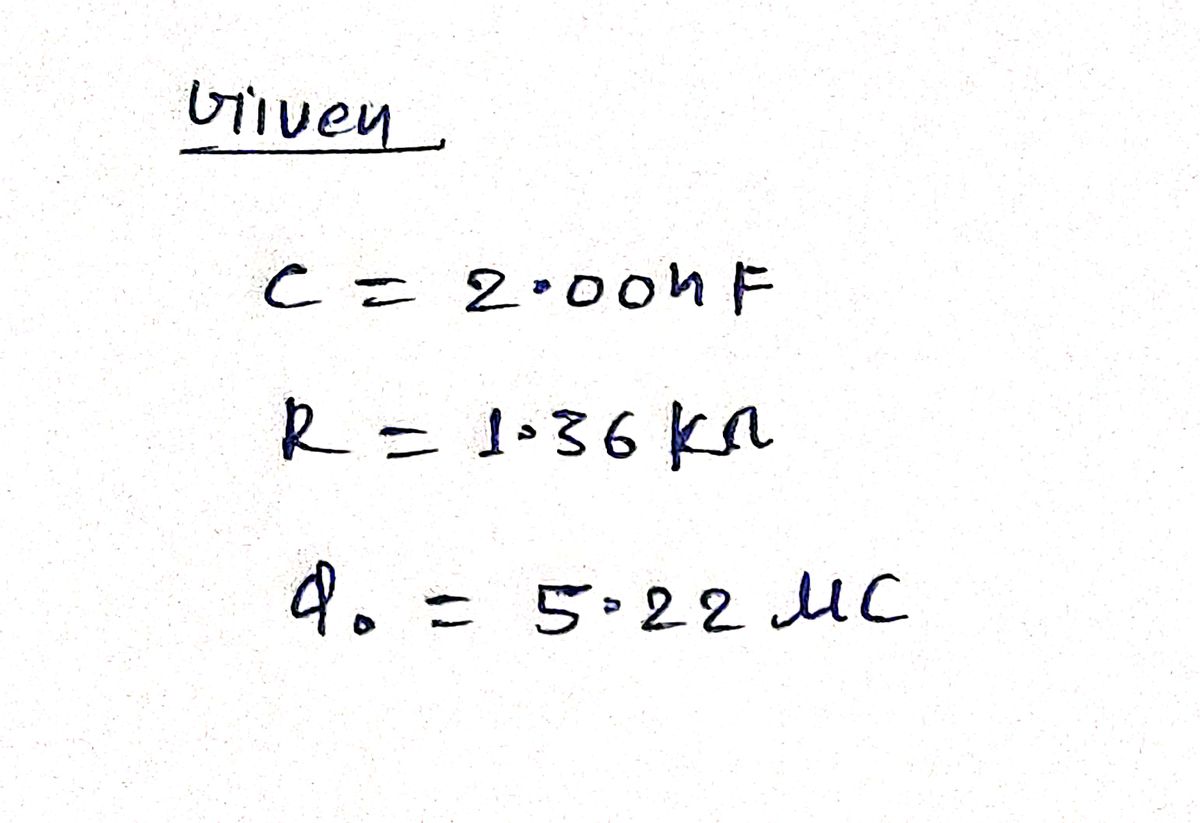 Given
C = 2.00nF
R = 1.36 KΩ
Q₀ = 5.22 μC